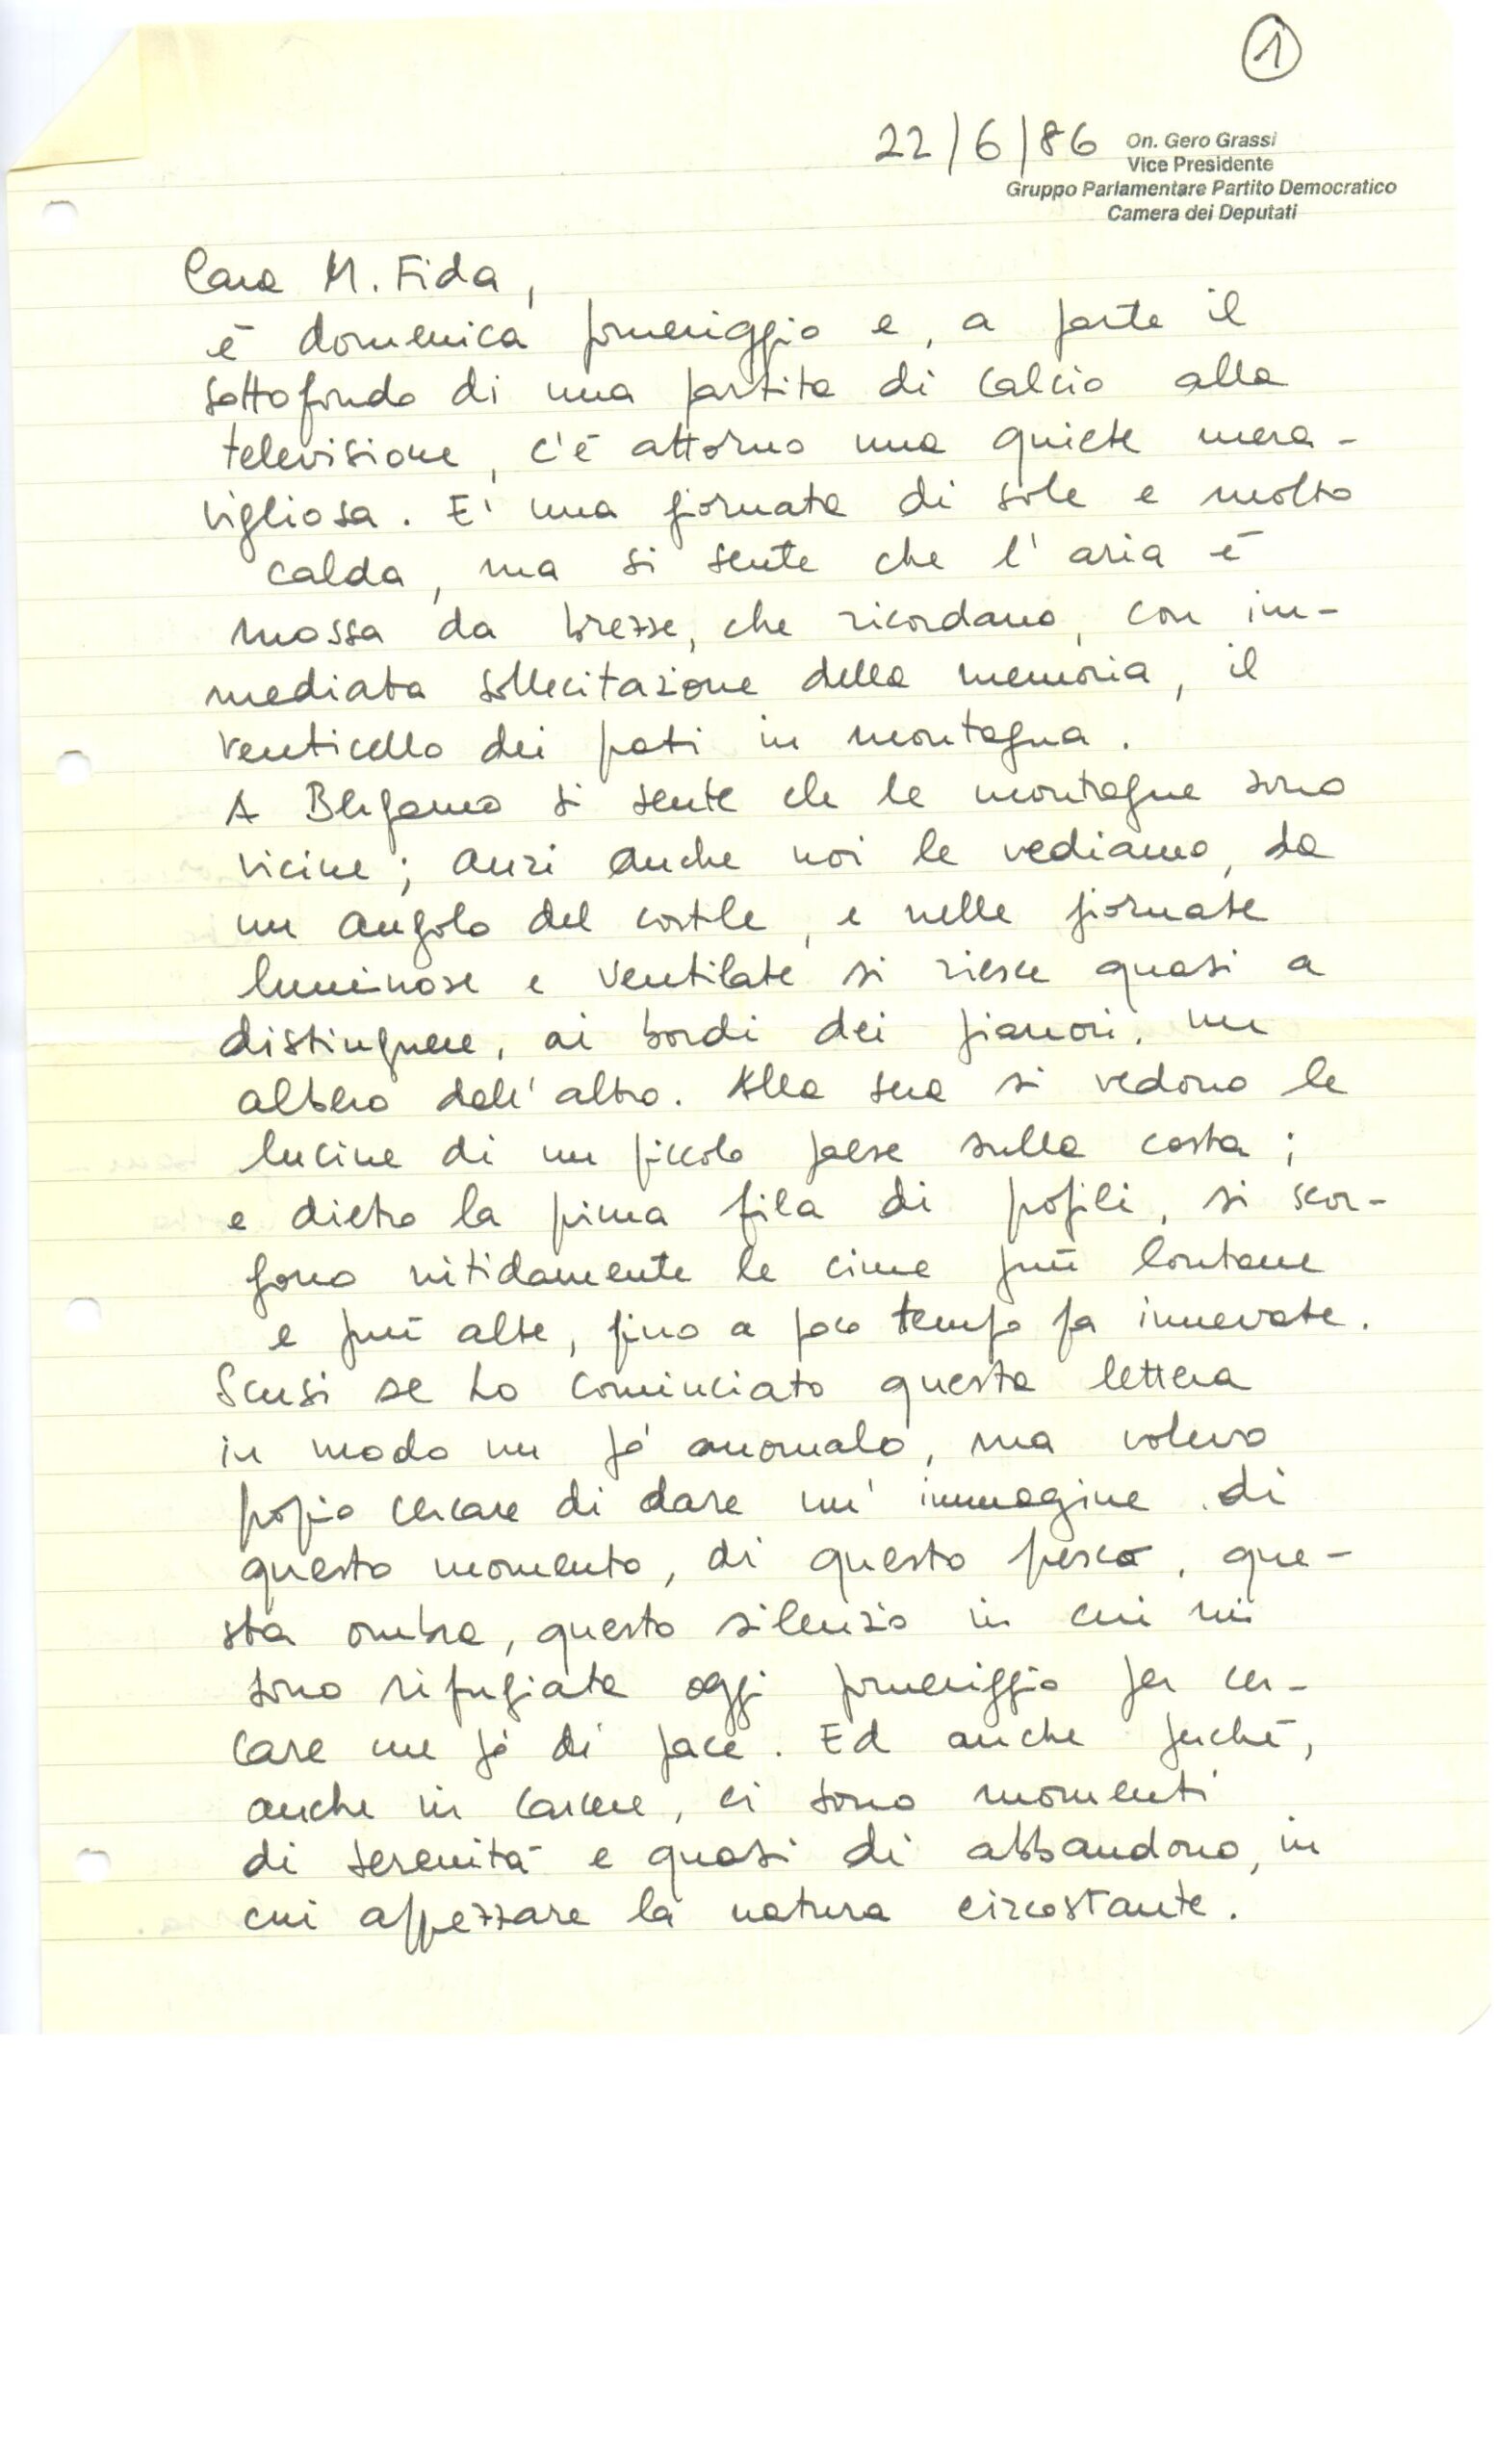 1
22/6/86
On. Gero Grassi
Vice Presidente
Gruppo Parlamentare Partito Democratico
Camera dei Deputati
Cara M. Fida,
è domenica pomeriggio e, a parte il
sottofondo di una partita di calcio alla
televisione, c'è attorno una quiete mera-
vigliosa. E' una giornata di sole e molto
calda, ma si sente che l'aria è
mossa da brezze, che ricordano, con im-
mediata sollecitazione della memoria, il
venticello dei prati in montagna.
A Bergamo si sente che le montagne sono
vicine; anzi anche noi le vediamo, da
un angolo del cortile, e nelle giornate
luminose e ventilate si riesce quasi a
distinguere, ai bordi dei pianori, un
albero dall'altro. Alla sera si vedono le
lucine di un piccolo paese sulla costa;
e dietro la prima fila di profili, si scor-
gono nitidamente le cime più lontane
e più alte, fino a poco tempo fa innevate.
Scusi se ho cominciato questa lettera
in modo un pò anomalo, ma volevo
proprio cercare di dare un'immagine di
questo momento, di questo fresco, que-
sta ombra, questo silenzio in cui mi
sono rifugiata oggi pomeriggio per cer-
care un pò di pace. Ed anche perchè,
anche in carcere, ci sono momenti
di serenità e quasi di abbandono, in
cui apprezzare la natura circostante.